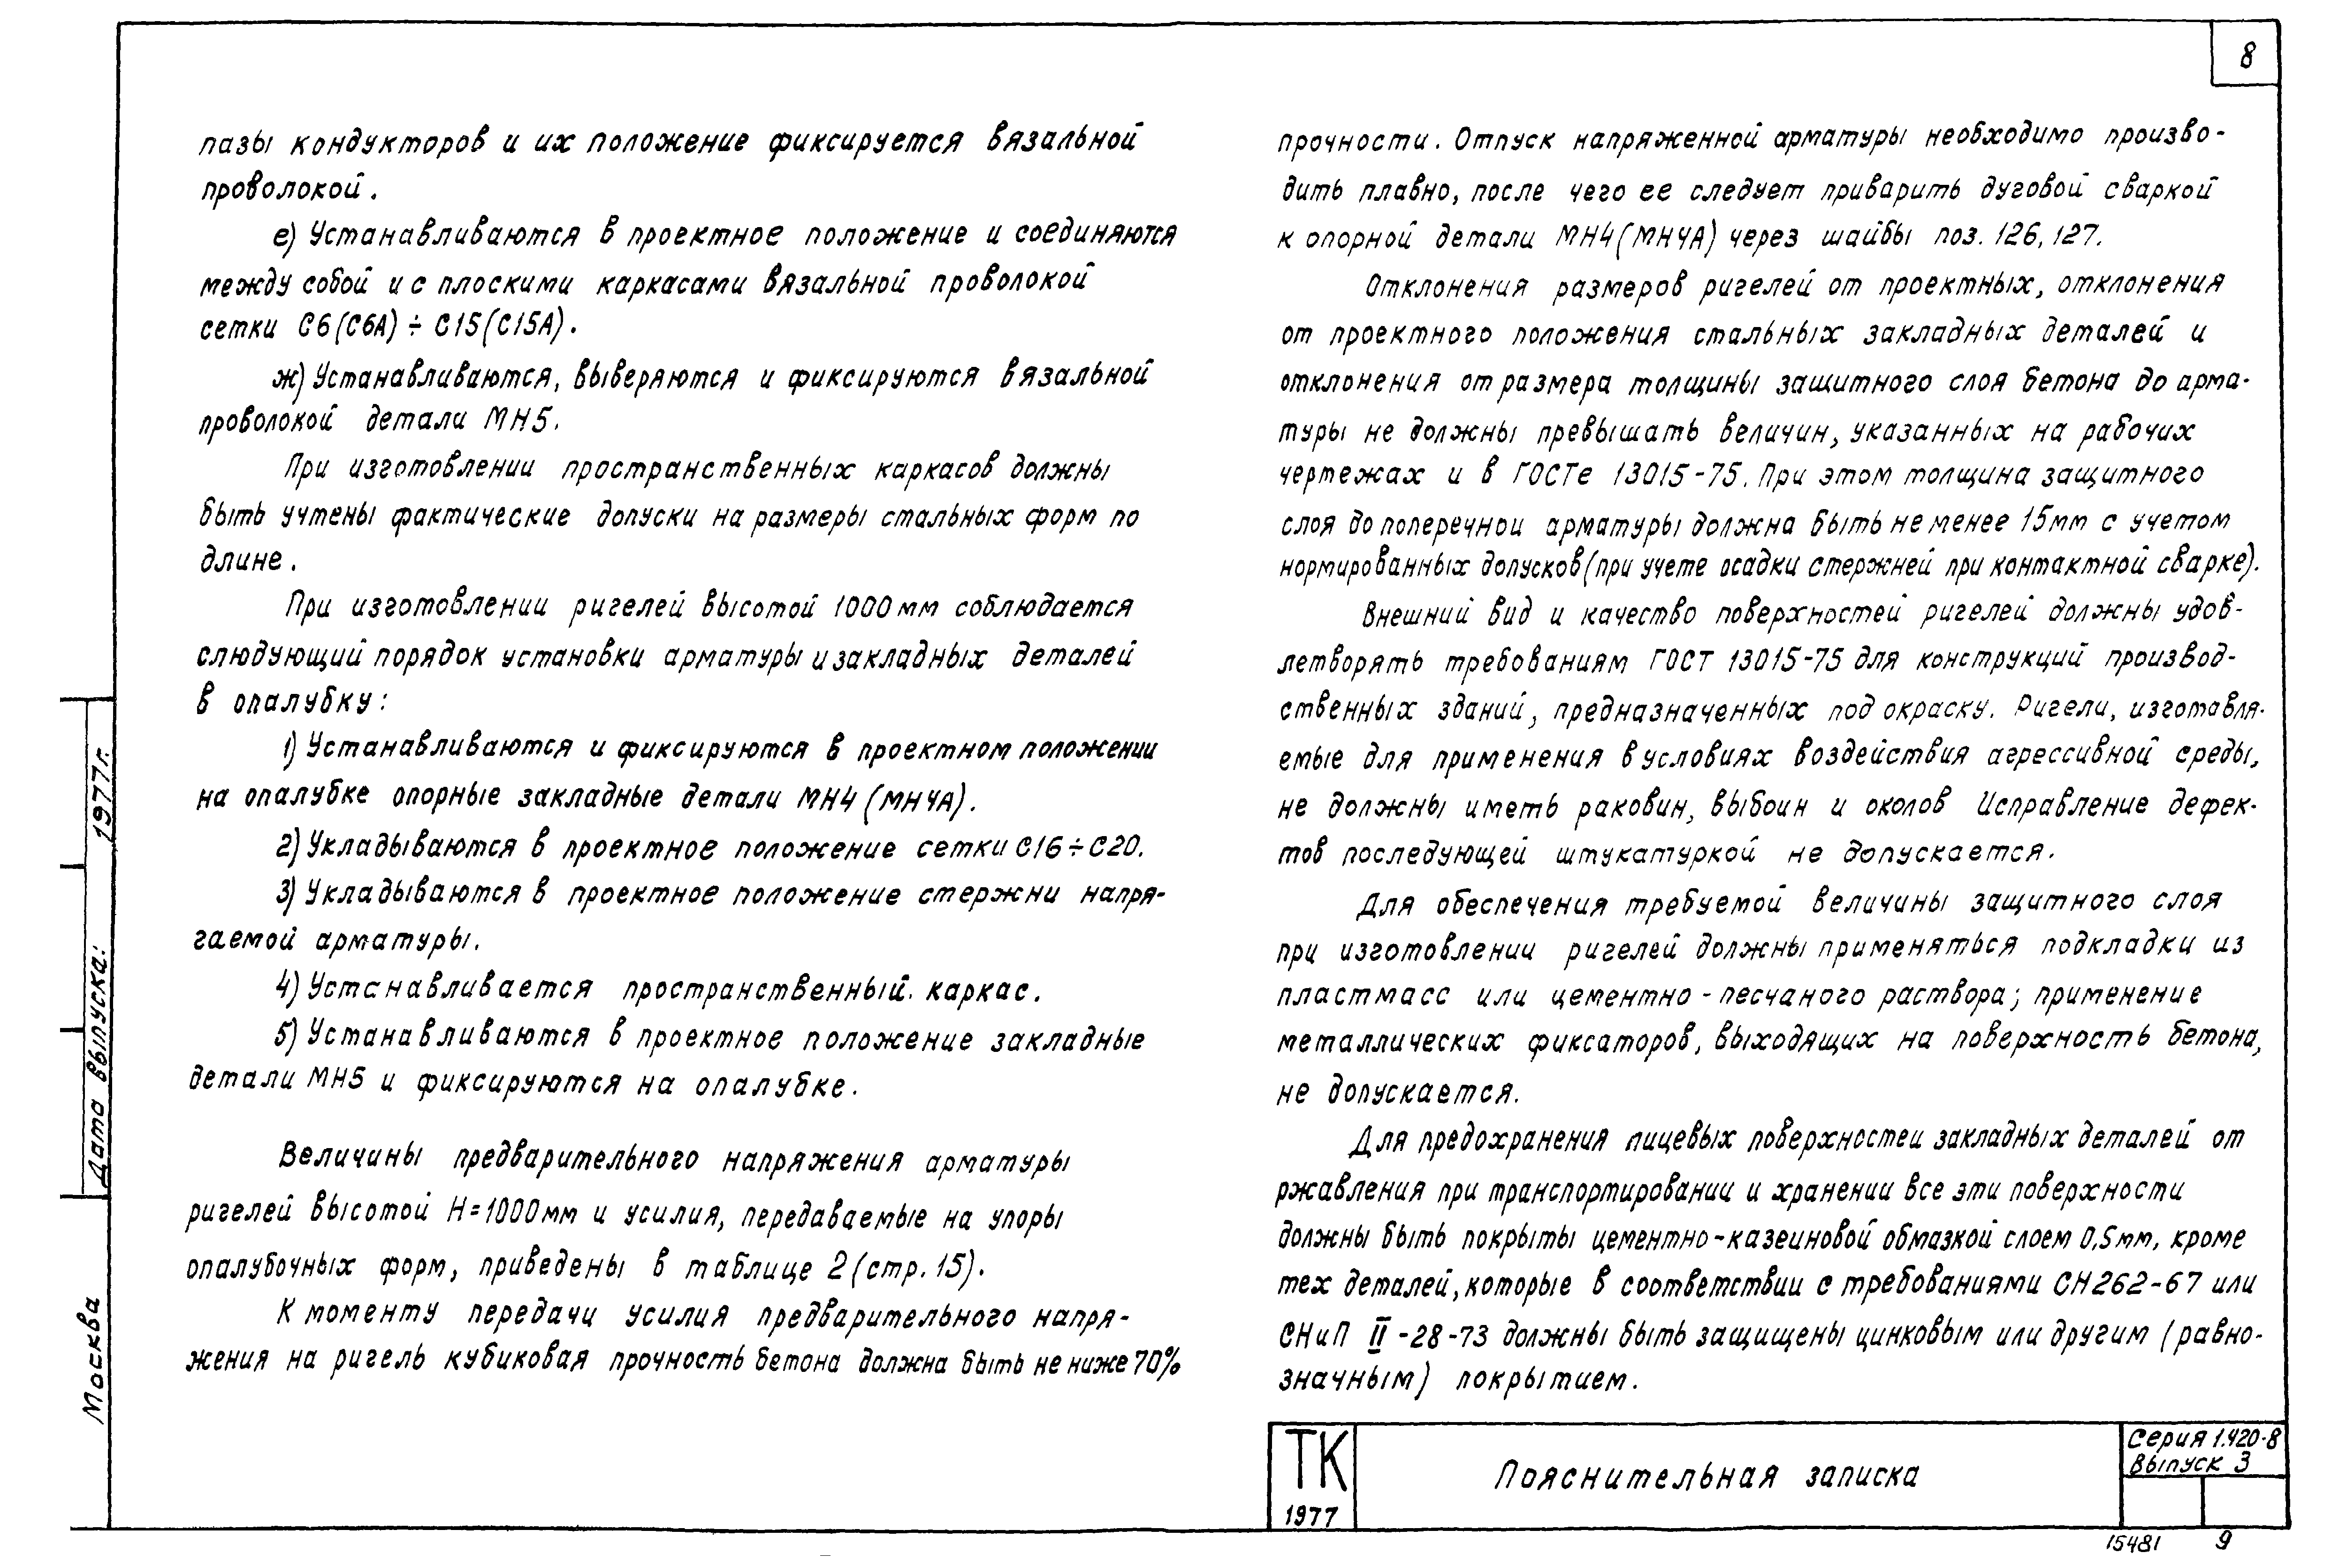 8
пазы кондукторов и их положение фиксируется вязальной
проволокой.
е) Устанавливаются в проектное положение и соединяются
между собой и с плоскими каркасами вязальной проволокой
сетки С6(С6А) ÷ С15(С15А).
ж) Устанавливаются, выверяются и фиксируются вязальной
проволокой детали МН5.
При изготовлении пространственных каркасов должны
быть учтены фактические допуски на размеры стальных форм по
длине.
При изготовлении ригелей высотой 1000мм соблюдается
слюдующий порядок установки арматуры и закладных деталей
в опалубку:
1) Устанавливаются и фиксируются в проектном положении
на опалубке опорные закладные детали МН4 (МН4А).
2) Укладываются в проектное положение сетки С16÷С20.
3) Укладываются в проектное положение стержни напря-
гаемой арматуры.
4) Устанавливается пространственный каркас.
5) Устанавливаются в проектное положение закладные
детали МН5 и фиксируются на опалубке.
Величины предварительного напряжения арматуры
ригелей высотой Н=1000мм и усилия, передаваемые на упоры
опалубочных форм, приведены в таблице 2 (стр. 15).
К моменту передачи усилия предварительного напря-
жения на ригель кубиковая прочность бетона должна быть не ниже 70%
прочности. Отпуск напряженной арматуры необходимо произво-
дить плавно, после чего ее следует приварить дуговой сваркой
к опорной детали МН4(МН4А) через шайбы поз. 126, 127.
Отклонения размеров ригелей от проектных, отклонения
от проектного положения стальных закладных деталей и
отклонения от размера толщины защитного слоя бетона до арма-
туры не должны превышать величин, указанных на рабочих
чертежах и в ГОСТе 13015-75. При этом толщина защитного
слоя до поперечнои арматуры должна быть не менее 15мм с учетом
нормированных допусков (при учете осадки стержней при контактной сварке).
Внешний вид и качество поверхностей ригелей должны удов-
летворять требованиям ГОСТ 13015-75 для конструкций производ-
ственных зданий, предназначенных под окраску. Ригели, изготавля-
емые для применения в условиях воздействия агрессивной среды,
не должны иметь раковин, выбоин и околов Исправление дефек-
тов последующей штукатуркой не допускается.
Для обеспечения требуемой величины защитного слоя
при изготовлении ригелей должны применяться подкладки из
пластмасс или цементно-песчаного раствора; применение
металлических фиксаторов, выходящих на поверхность бетона,
не допускается.
Для предохранения лицевых поверхностеи закладных деталей от
ржавления при транспортировании и хранении все эти поверхности
должны быть покрыты цементно-казеиновой обмазкой слоем 0,5мм, кроме
тех деталей, которые в соответствии с требованиями СН262-67 или
СНиП II-28-73 должны быть защищены цинковым или другим (равно-
значным) покрытием.
Москва
Дата выпуска: 1977г.
ТК
1977
Пояснительная записка
Серия 1.420-8
Выпуск 3
15481
9